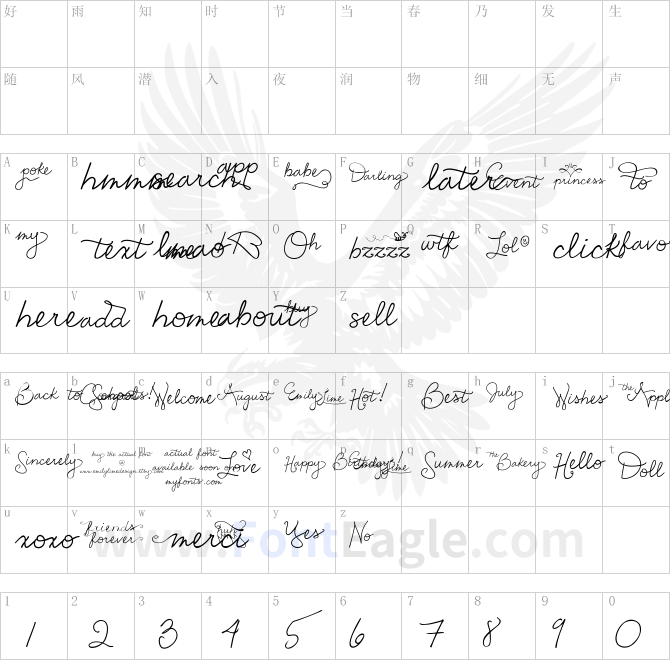 好 雨 知 时 节 当 春 乃 发 生
随 风 潜 入 夜 润 物 细 无 声
A B C D E F G H I J
poke hmmm search app babe Darling later Event princess to
K L M N O P Q R S T
my text lmao Oh bzzzz wtf Lol click favo
U V W X Y Z
here add home about buy sell
a b c d e f g h i j
Back to School Welcome August Emily Lime Hot! Best July Wishes the Appl
k l m n o p q r s t
Sincerely buy the actual font @ www.emilylimedesign.etsy.com actual font available soon on myfonts.com Love Happy Birthday! Lime Summer the Bakery Hello Doll
u v w x y z
xoxo friends forever merci Yes No
www.FontEagle.com
1 2 3 4 5 6 7 8 9 0
1 2 3 4 5 6 7 8 9 0